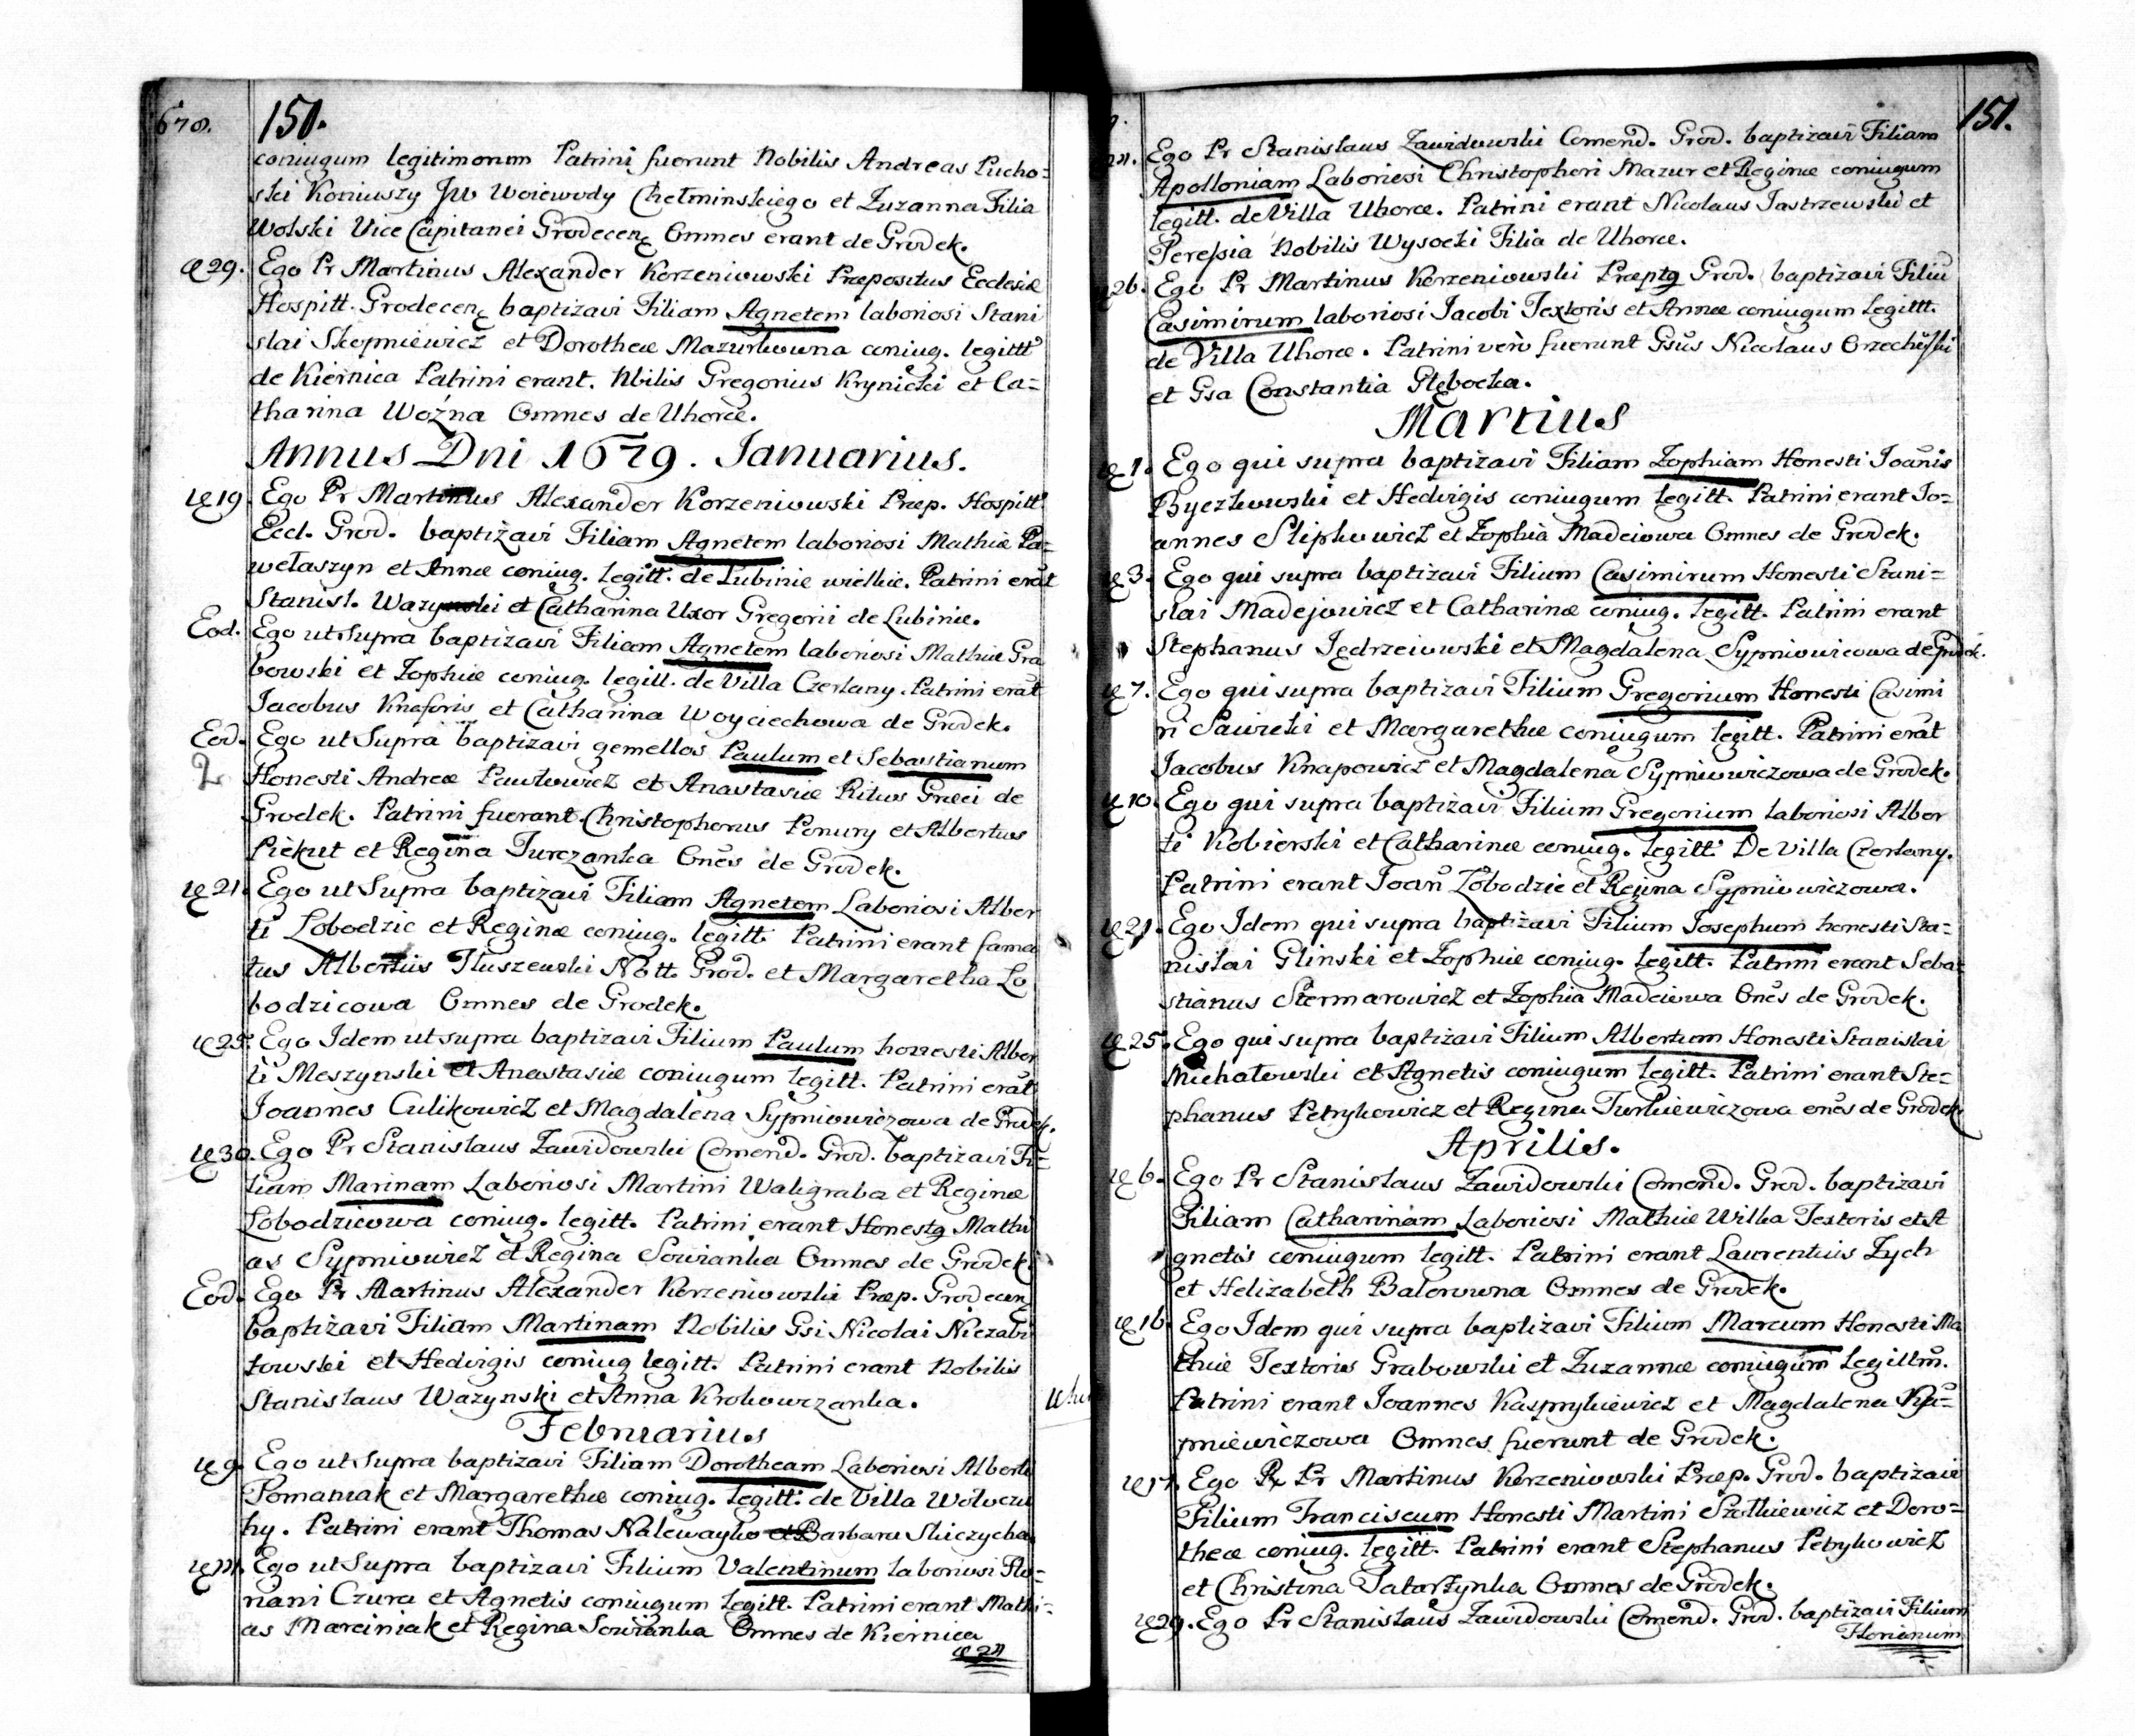 678.
150.
coniugum legitimorum Patrini fuerunt Nobilis Andreas Pucho=
ski Koniuszy JW Woiewody Chełminskiego et Zuzanna Filia
Wolski Vice Capitanei Grodecen̨ Omnes erant de Grodek.
29. Ego Pr Martinus Alexander Korzeniowski Præpositus Ecclesiæ
Hospitt. Grodecen̨ baptizavi Filiam Agnetem laboriosi Stani
slai Skopniewicz et Dorotheæ Mazurkowna coniug. legittt
de Kiernica Patrini erant. Nbilis Gregorius Krynicki et Ca=
tharina Woźna Omnes de Uhorce.
Annus Dni 1679. Ianuarius.
19 Ego Pr Martinus Alexander Korzeniowski Præp. Hospitt
Eccl. Grod. baptizavi Filiam Agnetem laboriosi Mathiæ Pa=
wełaszyn et Annæ coniug. legitt. de Lubinie wielkie. Patrini erat
Stanisl. Wazynski et Catharina Uxor Gregorii de Lubinie.
Eod. Ego ut Supra baptizavi Filiam Agnetem laboriosi Mathiæ Gra
bowski et Zophiæ coniug. legitt. de Villa Czerlany. Patrini erat
Jacobus Knaforis et Catharina Woyciechowa de Grodek.
Eod. Ego ut Supra baptizavi gemellos Paulum et Sebastianum
2 Honesti Andreæ Pawłowicz et Anastasiæ Ritus Græci de
Grodek. Patrini fuerant Christophorus Ponury et Albertus
Piekut et Regina Turczanka Onēs de Grodek.
21. Ego ut Supra baptizavi Filiam Agnetem Laboriosi Alber
ti Lobodzic et Reginæ coniug. legitt. Patrini erant fama
tus Albertus Tłuszewski Nott. Grod. et Margaretha Lo
bodzicowa Omnes de Grodek.
25. Ego Idem ut supra baptizavi Filium Paulum honesti Alber
ti Meszynski et Anastasiæ coniugum legitt. Patrini erat
Joannes Culikowicz et Magdalena Sypniowiczowa de Grodek.
30. Ego Pr Stanislaus Zawidowski Comend. Grod. baptizavi Fi=
liam Marinam Laboriosi Martini Waligraba et Reginæ
Lobodzicowa coniug. legitt. Patrini erant Honestq Mathi
as Sypniowicz et Regina Sowianka Omnes de Grodek.
Eod. Ego Pr Martinus Alexander Korzeniowski Præp. Grodecen̨
baptizavi Filiam Martinam Nobilis Gsi Nicolai Niezabi
towski et Hedvigis coniug legitt. Patrini erant Nobilis
Stanislaus Wazynski et Anna Krokowczanka.
Februarius
9. Ego ut Supra baptizavi Filiam Dorotheam Laboriosi Alberti
Pomaniak et Margarethæ coniug. legitt. de Villa Wolvczu
hy. Patrini erant Thomas Nalewayko et Barbara Sliczycha
Ego ut Supra baptizavi Filium Valentinum laboriosi Flo=
riani Czura et Agnetis coniugum legitt. Patrini erant Mathi=
as Marciniak et Regina Sowianka Omnes de Kiernica
151.
Ego Pr Stanislaus Zawidowski Comend. Grod. baptizavi Filiam
Apolloniam Laboriosi Christophori Mazur et Reginæ coniugum
legitt. de Villa Uhorce. Patrini erant Nicolaus Jastrzewski et
Perepsia Nobilis Wysocki Filia de Uhorce.
26. Ego Pr Martinus Korzeniowski Præptq Grod. baptizavi Filiū
Casimirum laboriosi Jacobi Textoris et Annæ coniugum legittt.
de Villa Uhorce. Patrini verò fuerunt Gsūs Nicolaus Orzechowski
et Gsa Constantia Głębocka.
Martius
1. Ego qui supra baptizavi Filiam Zophiam Honesti Joānis
Byczkowski et Hedvigis coniugum legitt. Patrini erant Jo=
annes Slipkowicz et Zophia Madeiowa Omnes de Grodek.
3. Ego qui supra baptizavi Filium Casimirum Honesti Stani=
slai Madejowicz et Catharinæ coniug. legitt. Patrini erant
Stephanus Jędrzeiowski et Magdalena Sypniowicowa de Grodek.
7. Ego qui supra baptizavi Filium Gregorium Honesti Casimi
ri Sawicki et Margarethæ coniugum legitt. Patrini erat
Jacobus Knapowicz et Magdalena Sypniowiczowa de Grodek.
10. Ego qui supra baptizavi Filium Gregorium laboriosi Alber
ti Kobierski et Catharinæ coniug. legitt. De Villa Czerlany.
Patrini erant Joañ Lobodzic et Regina Sypniowiczowa.
21. Ego Idem qui supra baptizavi Filium Josephum honesti Sta=
nislai Glinski et Zophiæ coniug. legitt. Patrini erant Seba=
stianus Stermarowicz et Zophia Madeiowa Onēs de Grodek.
25. Ego qui supra baptizavi Filium Albertum Honesti Stanislai
Michałowski et Agnetis coniugum legitt. Patrini erant Ste=
phanus Petrykowicz et Regina Turkiewiczowa onēs de Grodek
Aprilis.
6. Ego Pr Stanislaus Zawidowski Comend. Grod. baptizavi
Filiam Catharinam Laboriosi Mathiæ Wilka Textoris et A
gnetis coniugum legitt. Patrini erant Laurentius Zych
et Helizabeth Balerowna Omnes de Grodek.
16. Ego Idem qui supra baptizavi Filium Marcum Honesti Ma
thiæ Textoris Grabowski et Zuzannæ coniugum legittm̄.
Patrini erant Joannes Kasprykiewicz et Magdalena Sy=
pniewiczowa Omnes fuerunt de Grodek.
17. Ego Pr Martinus Korzeniowski Præp. Grod. baptizavi
Filium Franciscum Honesti Martini Szolkiewicz et Doro=
theæ coniug. legitt. Patrini erant Stephanus Petrykowicz
et Christina Tatarzynka Omnes de Grodek.
29. Ego Pr Stanislaus Zawidowski Comend. Grod. baptizavi Filium
Florianum